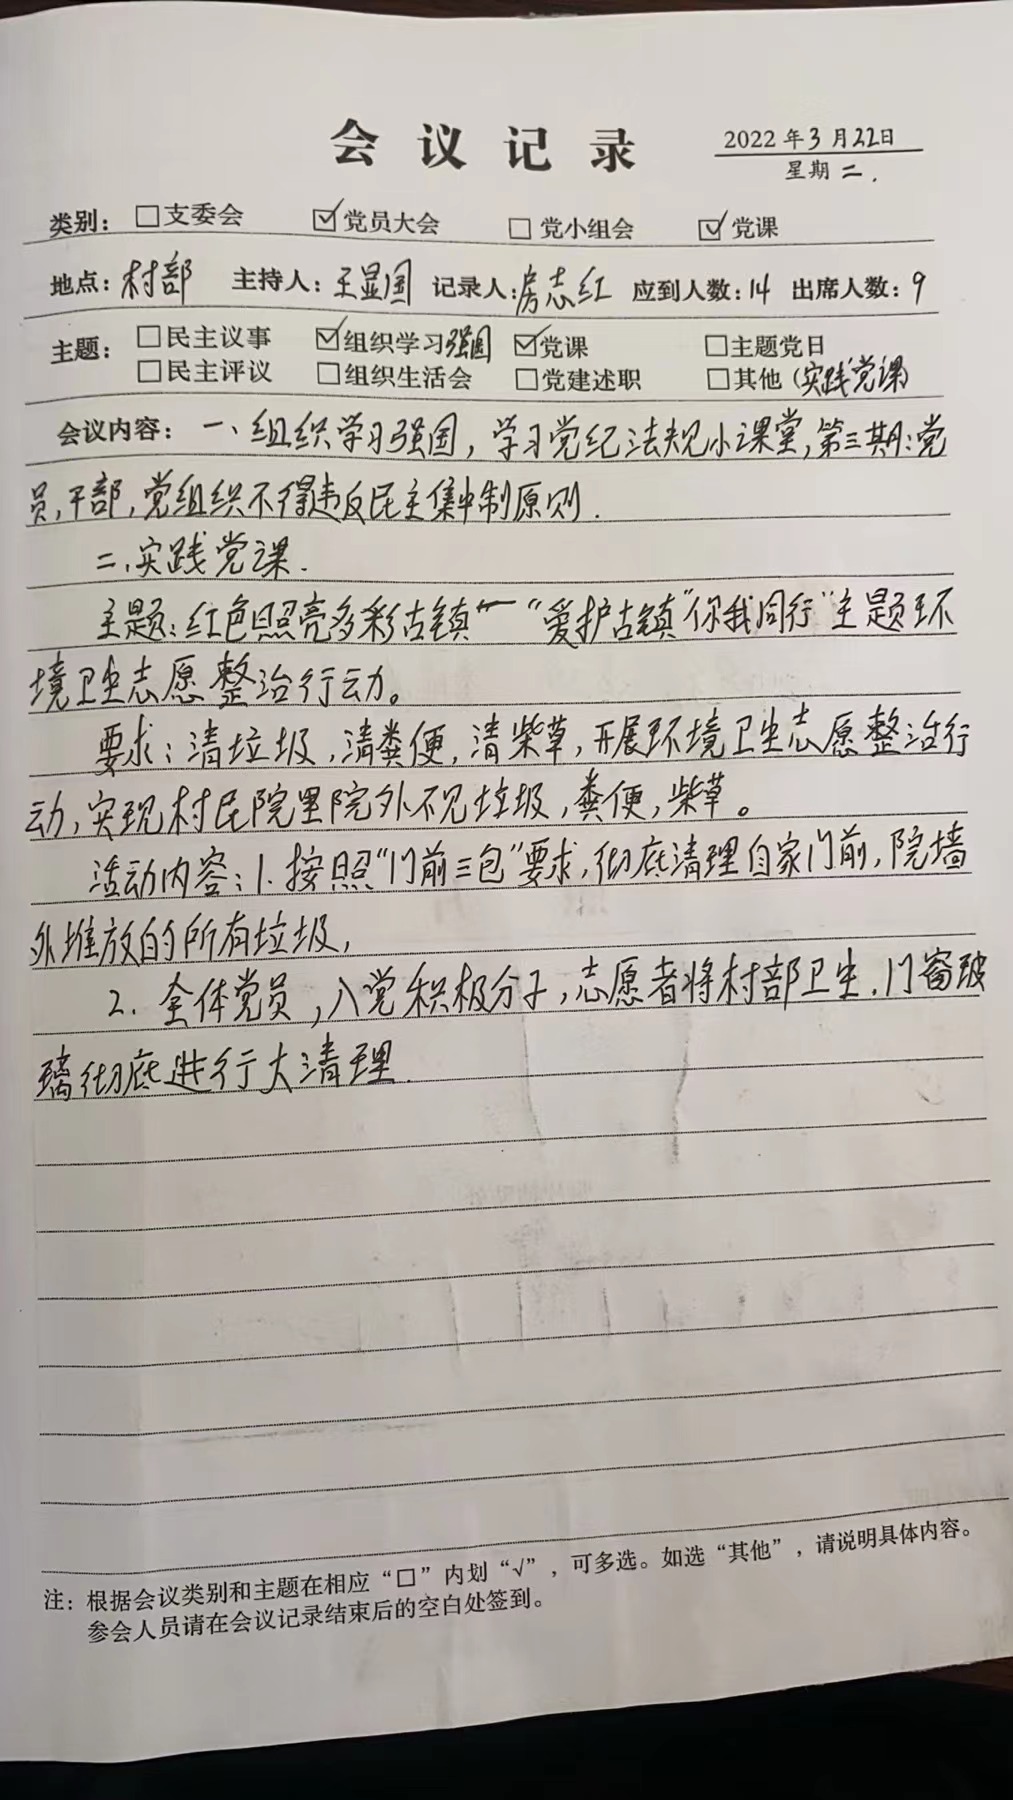 会议记录
2022年3月22日
星期二.
类别： □支委会 ☑党员大会 □党小组会 ☑党课
地点：村部 主持人：王显国 记录人：房志红 应到人数：14 出席人数：9
主题： □民主议事 ☑组织学习强国 ☑党课 □主题党日
□民主评议 □组织生活会 □党建述职 □其他（实践党课）
会议内容：一、组织学习强国，学习党纪法规小课堂，第三期：党
员，干部，党组织不得违反民主集中制原则.
二、实践党课.
主题：红色照亮多彩古镇—“爱护古镇”你我同行”主题环
境卫生志愿整治行动。
要求：清垃圾，清粪便，清柴草，开展环境卫生志愿整治行
动，实现村民院里院外不见垃圾，粪便，柴草。
活动内容：1.按照“门前三包”要求，彻底清理自家门前，院墙
外堆放的所有垃圾，
2.全体党员，入党积极分子，志愿者将村部卫生，门窗玻
璃彻底进行大清理.
注：根据会议类别和主题在相应“□”内划“√”，可多选。如选“其他”，请说明具体内容。
参会人员请在会议记录结束后的空白处签到。